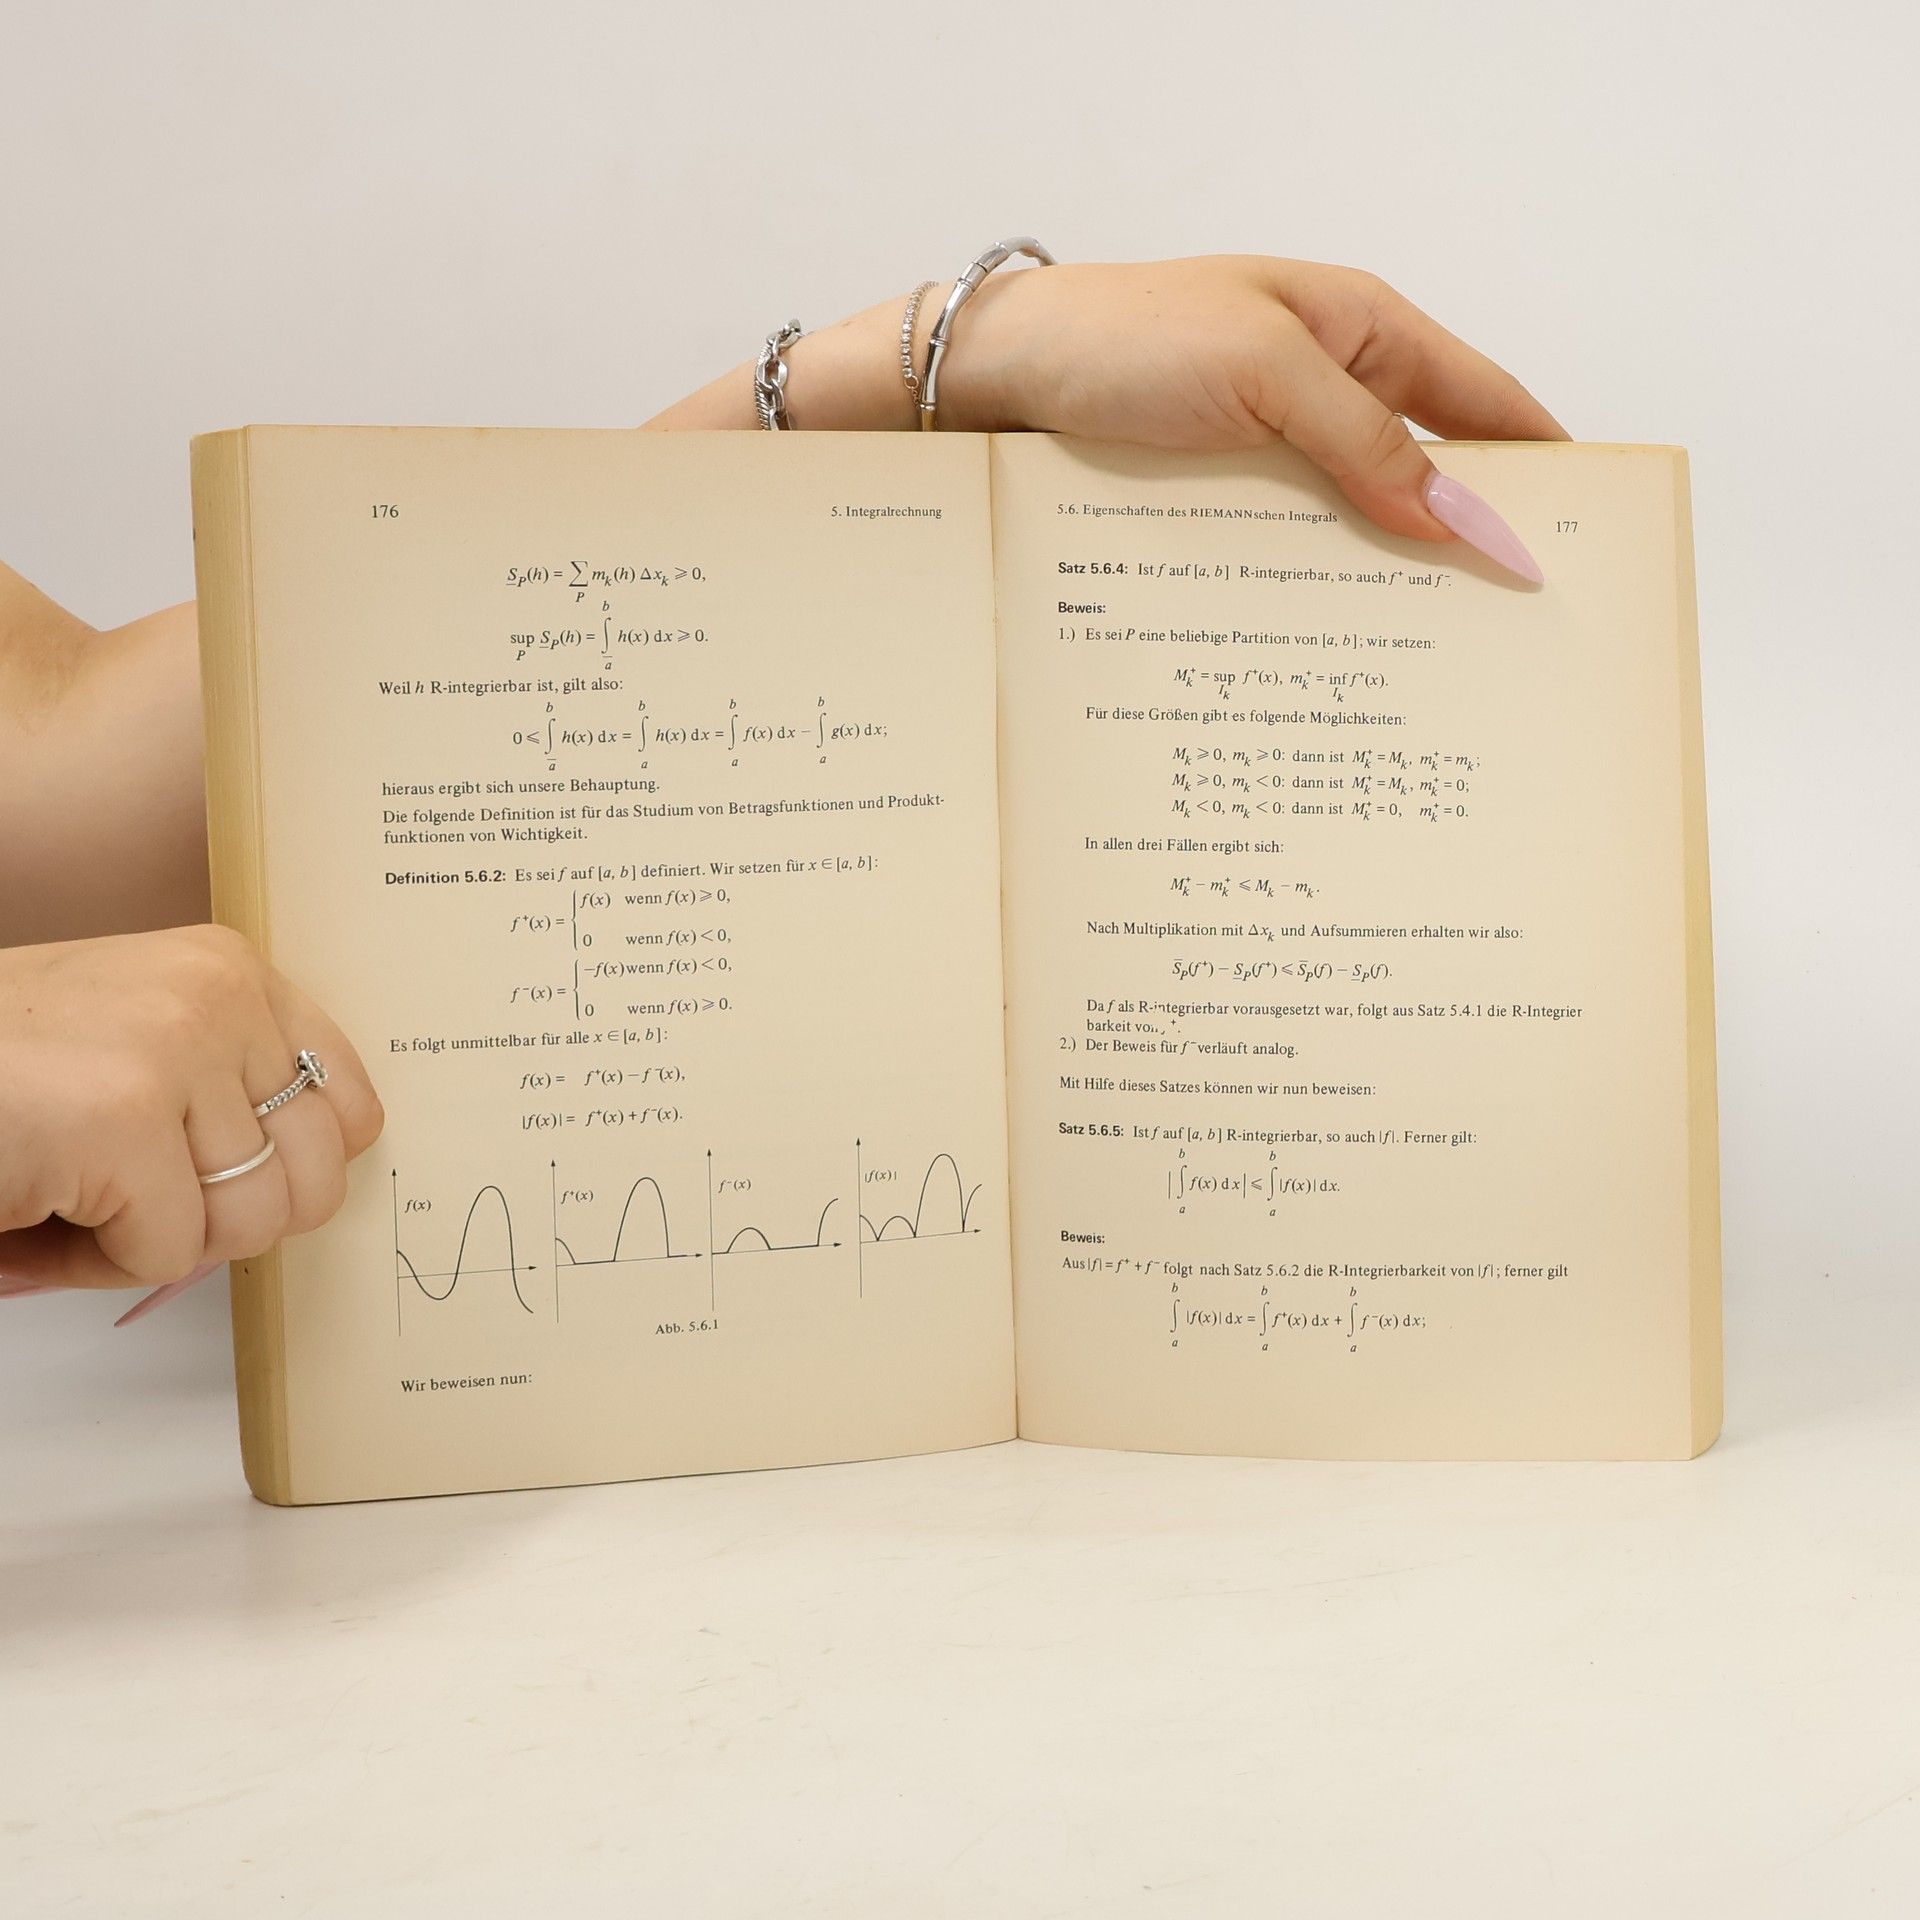 176 5. Integralrechnung
S̲_P(h) = ∑_P m_k(h) Δx_k ⩾ 0,
sup_P S̲_P(h) = ∫_a̅^b h(x) dx ⩾ 0.
Weil h R-integrierbar ist, gilt also:
0 ⩽ ∫_a̅^b h(x) dx = ∫_a^b h(x) dx = ∫_a^b f(x) dx − ∫_a^b g(x) dx;
hieraus ergibt sich unsere Behauptung.
Die folgende Definition ist für das Studium von Betragsfunktionen und Produkt-
funktionen von Wichtigkeit.
Definition 5.6.2: Es sei f auf [a, b] definiert. Wir setzen für x ∈ [a, b]:
f⁺(x) = { f(x) wenn f(x) ⩾ 0,
0 wenn f(x) < 0,
f⁻(x) = { −f(x) wenn f(x) < 0,
0 wenn f(x) ⩾ 0.
Es folgt unmittelbar für alle x ∈ [a, b]:
f(x) = f⁺(x) − f⁻(x),
|f(x)| = f⁺(x) + f⁻(x).
f(x) f⁺(x) f⁻(x) |f(x)|
Abb. 5.6.1
Wir beweisen nun:
5.6. Eigenschaften des RIEMANNschen Integrals 177
Satz 5.6.4: Ist f auf [a, b] R-integrierbar, so auch f⁺ und f⁻.
Beweis:
1.) Es sei P eine beliebige Partition von [a, b]; wir setzen:
M_k⁺ = sup_{I_k} f⁺(x), m_k⁺ = inf_{I_k} f⁺(x).
Für diese Größen gibt es folgende Möglichkeiten:
M_k ⩾ 0, m_k ⩾ 0: dann ist M_k⁺ = M_k, m_k⁺ = m_k;
M_k ⩾ 0, m_k < 0: dann ist M_k⁺ = M_k, m_k⁺ = 0;
M_k < 0, m_k < 0: dann ist M_k⁺ = 0, m_k⁺ = 0.
In allen drei Fällen ergibt sich:
M_k⁺ − m_k⁺ ⩽ M_k − m_k.
Nach Multiplikation mit Δx_k und Aufsummieren erhalten wir also:
S̅_P(f⁺) − S̲_P(f⁺) ⩽ S̅_P(f) − S̲_P(f).
Da f als R-integrierbar vorausgesetzt war, folgt aus Satz 5.4.1 die R-Integrier
barkeit von ⁺.
2.) Der Beweis für f⁻ verläuft analog.
Mit Hilfe dieses Satzes können wir nun beweisen:
Satz 5.6.5: Ist f auf [a, b] R-integrierbar, so auch |f|. Ferner gilt:
| ∫_a^b f(x) dx | ⩽ ∫_a^b |f(x)| dx.
Beweis:
Aus |f| = f⁺ + f⁻ folgt nach Satz 5.6.2 die R-Integrierbarkeit von |f|; ferner gilt
∫_a^b |f(x)| dx = ∫_a^b f⁺(x) dx + ∫_a^b f⁻(x) dx;